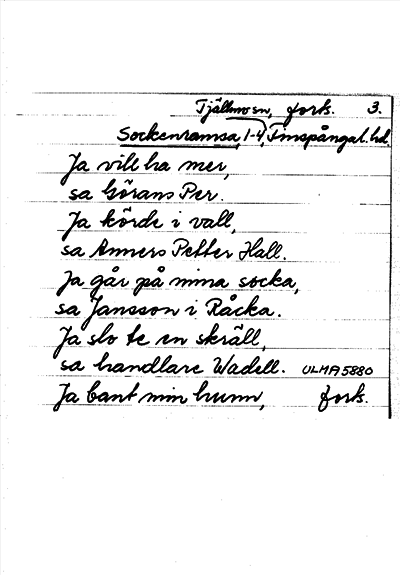 Tjällmo sn, forts. 3.
Sockenramsa, 1-4, Finspångal. hd
Ja vill ha mer,
sa Görans Per.
Ja körde i vall,
sa Anners Petter Hall.
Ja går på mina socka,
sa Jansson i Råcka.
Ja slo te en skräll,
sa handlare Wadell. ULMA 5880
Ja bant min hunn, forts.